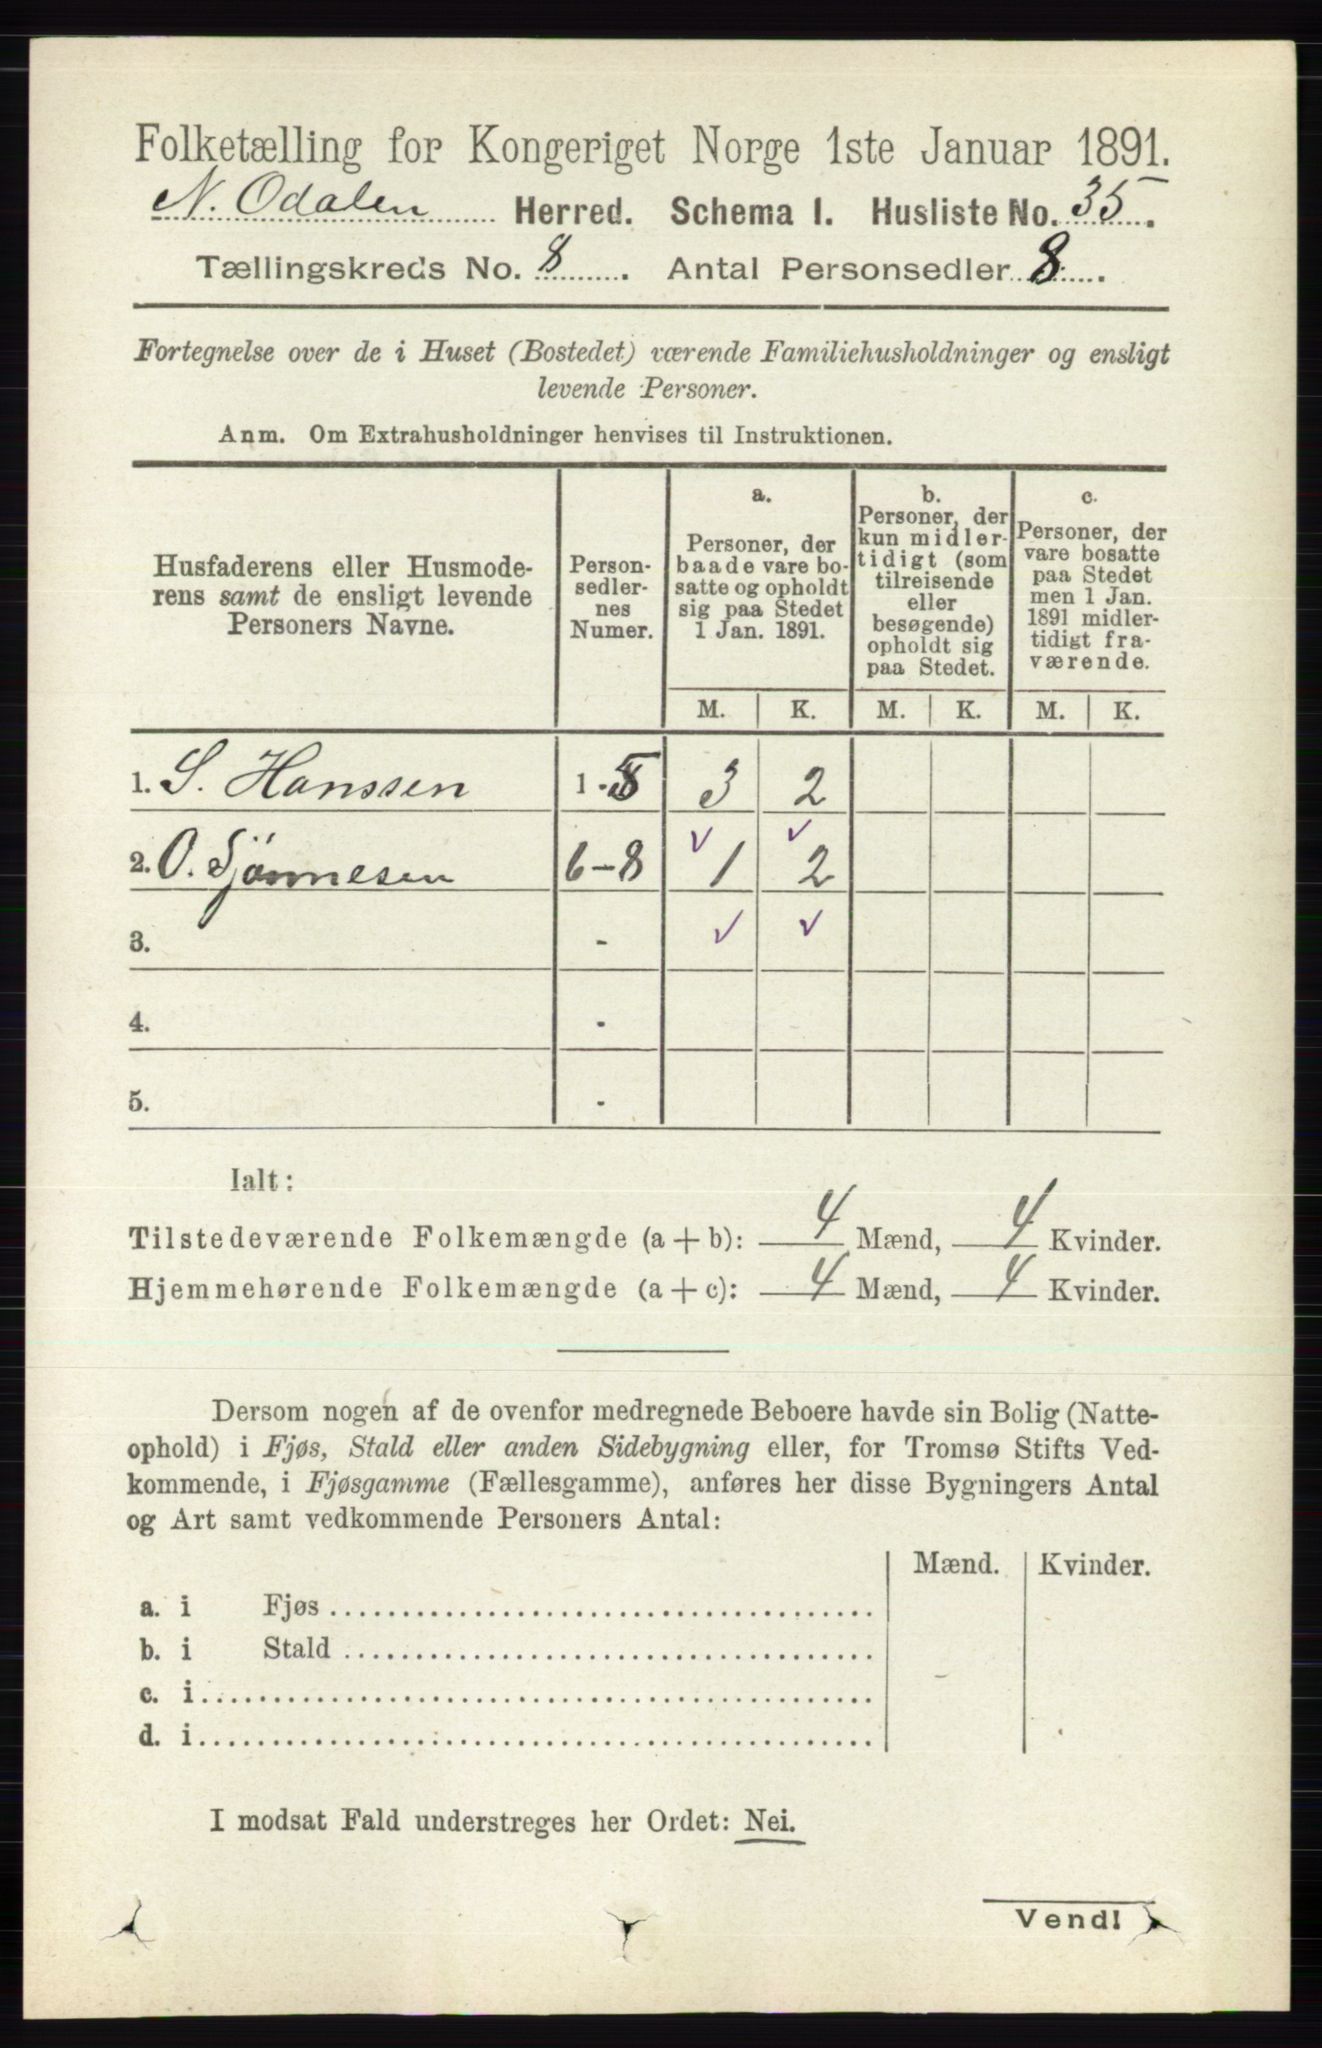 Folketælling for Kongeriget Norge 1ste Januar 1891.
N. Odalen Herred. Schema I. Husliste No. 35.
Tællingskreds No. 8. Antal Personsedler 8.
Fortegnelse over de i Huset (Bostedet) værende Familiehusholdninger og ensligt
levende Personer.
Anm. Om Extrahusholdninger henvises til Instruktionen.
Husfaderens eller Husmode-
rens samt de ensligt levende
Personers Navne.
Person-
sedler-
nes
Numer.
a.
Personer, der
baade vare bo-
satte og opholdt
sig paa Stedet
1 Jan. 1891.
b.
Personer, der
kun midler-
tidigt (som
tilreisende
eller
besøgende)
opholdt sig
paa Stedet.
c.
Personer, der
vare bosatte
paa Stedet
men 1 Jan.
1891 midler-
tidigt fra-
værende.
M. K. M. K. M. K.
1. S. Hanssen 1-5 3 2
2. O. Sjönnesen 6-8 1 2
3. -
4. -
5. -
Ialt:
Tilstedeværende Folkemængde (a + b): 4 Mænd, 4 Kvinder.
Hjemmehørende Folkemængde (a + c): 4 Mænd, 4 Kvinder.
Dersom nogen af de ovenfor medregnede Beboere havde sin Bolig (Natte-
ophold) i Fjøs, Stald eller anden Sidebygning eller, for Tromsø Stifts Ved-
kommende, i Fjøsgamme (Fællesgamme), anføres her disse Bygningers Antal
og Art samt vedkommende Personers Antal:
Mænd. Kvinder.
a. i Fjøs
b. i Stald
c. i
d. i
I modsat Fald understreges her Ordet: Nei.
Vend!